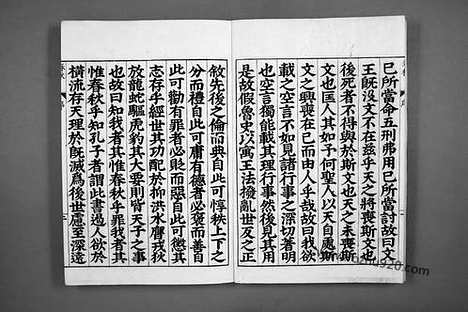 已所當命五刑弗用已所當討故曰文
王既沒文不在兹乎天之將喪斯文也
後死者不得與於斯文也天之未喪斯
文也匡人其如予何聖人以天自處斯
文之興喪在已而由人乎哉故曰我欲
載之空言不如見諸行事之深切著明
也空言獨能載其理行事然後見其用
是故假魯史以寓王法撥亂世反之正
敘先後之倫而典自此可惇秩上下之
分而禮自此可庸有德者必褒而善自
此可勸有罪者必貶而惡自此可懲其
志存乎經世其功配於抑洪水膺戎狄
放龍蛇驅虎豹其大要則皆天子之事
也故曰知我者其惟春秋乎罪我者其
惟春秋乎知孔子者謂此書遏人欲於
橫流存天理於既滅爲後世慮至深遠